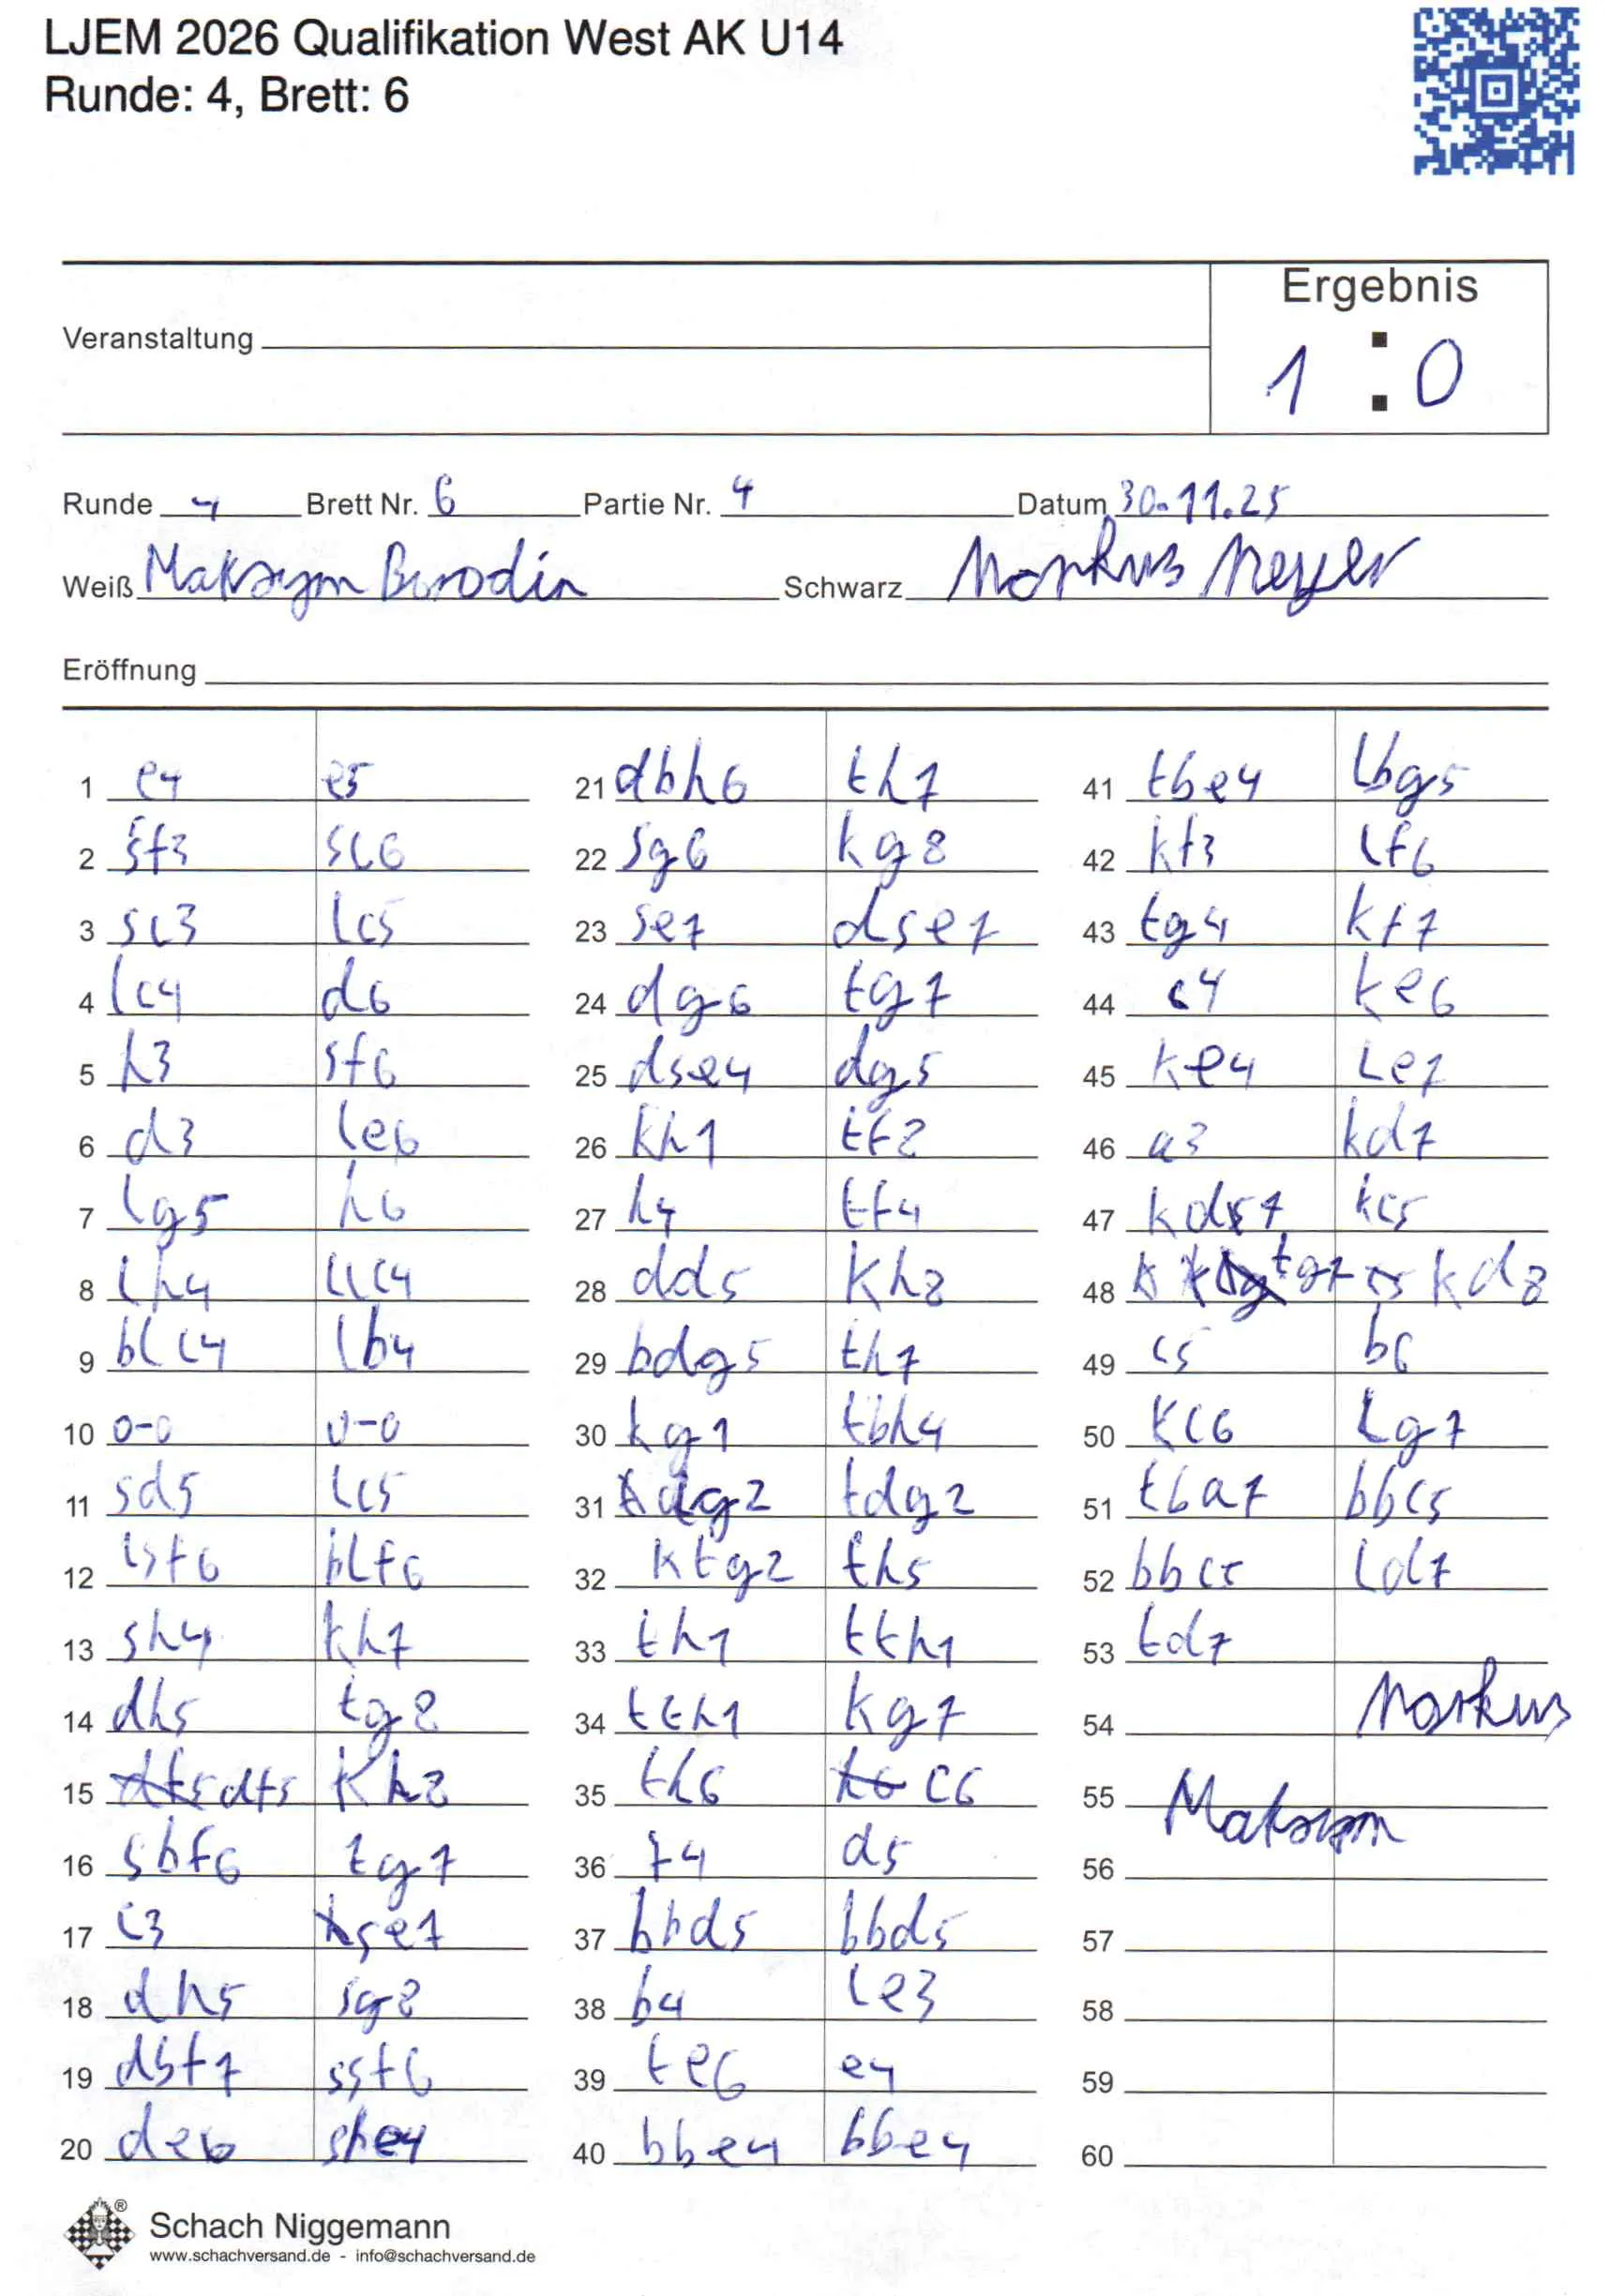 LJEM 2026 Qualifikation West AK U14
Runde: 4, Brett: 6
Ergebnis
Veranstaltung
1 : 0
Runde 4 Brett Nr. 6 Partie Nr. 4 Datum 30.11.25
Weiß Maksym Borodin Schwarz Markus Meyer
Eröffnung
1 e4 e5
2 sf3 sc6
3 sc3 lc5
4 lc4 d6
5 h3 sf6
6 d3 le6
7 lg5 h6
8 lh4 llc4
9 blc4 lb4
10 0-0 0-0
11 sd5 lc5
12 lsf6 blf6
13 sh4 kh7
14 dh5 tg8
15 df5 Kh8
16 sbf6 tg7
17 c3 se7
18 dh5 sg8
19 dbf7 ssf6
20 de6 sbe4
21 dbh6 th7
22 sg6 kg8
23 se7 dse7
24 dg6 tg7
25 dse4 dg5
26 kh1 tf8
27 h4 tf4
28 dd5 Kh8
29 bdg5 th7
30 kg1 tbh4
31 dg2 tdg2
32 ktg2 th5
33 th1 tth1
34 tth1 kg7
35 th6 c6
36 f4 d5
37 bbd5 bbd5
38 b4 le3
39 te6 e4
40 bbe4 bbe4
41 tbe4 lbg5
42 kf3 lf6
43 tg4 kf7
44 c4 ke6
45 ke4 Le7
46 a3 kd7
47 kd5 kc5
48 tg7 kd8
49 c5 b6
50 Kc6 Lg7
51 tba7 bbc5
52 bbc5 ld7
53 td7
54 Markus
55 Maksym
56
57
58
59
60
®
Schach Niggemann
www.schachversand.de - info@schachversand.de